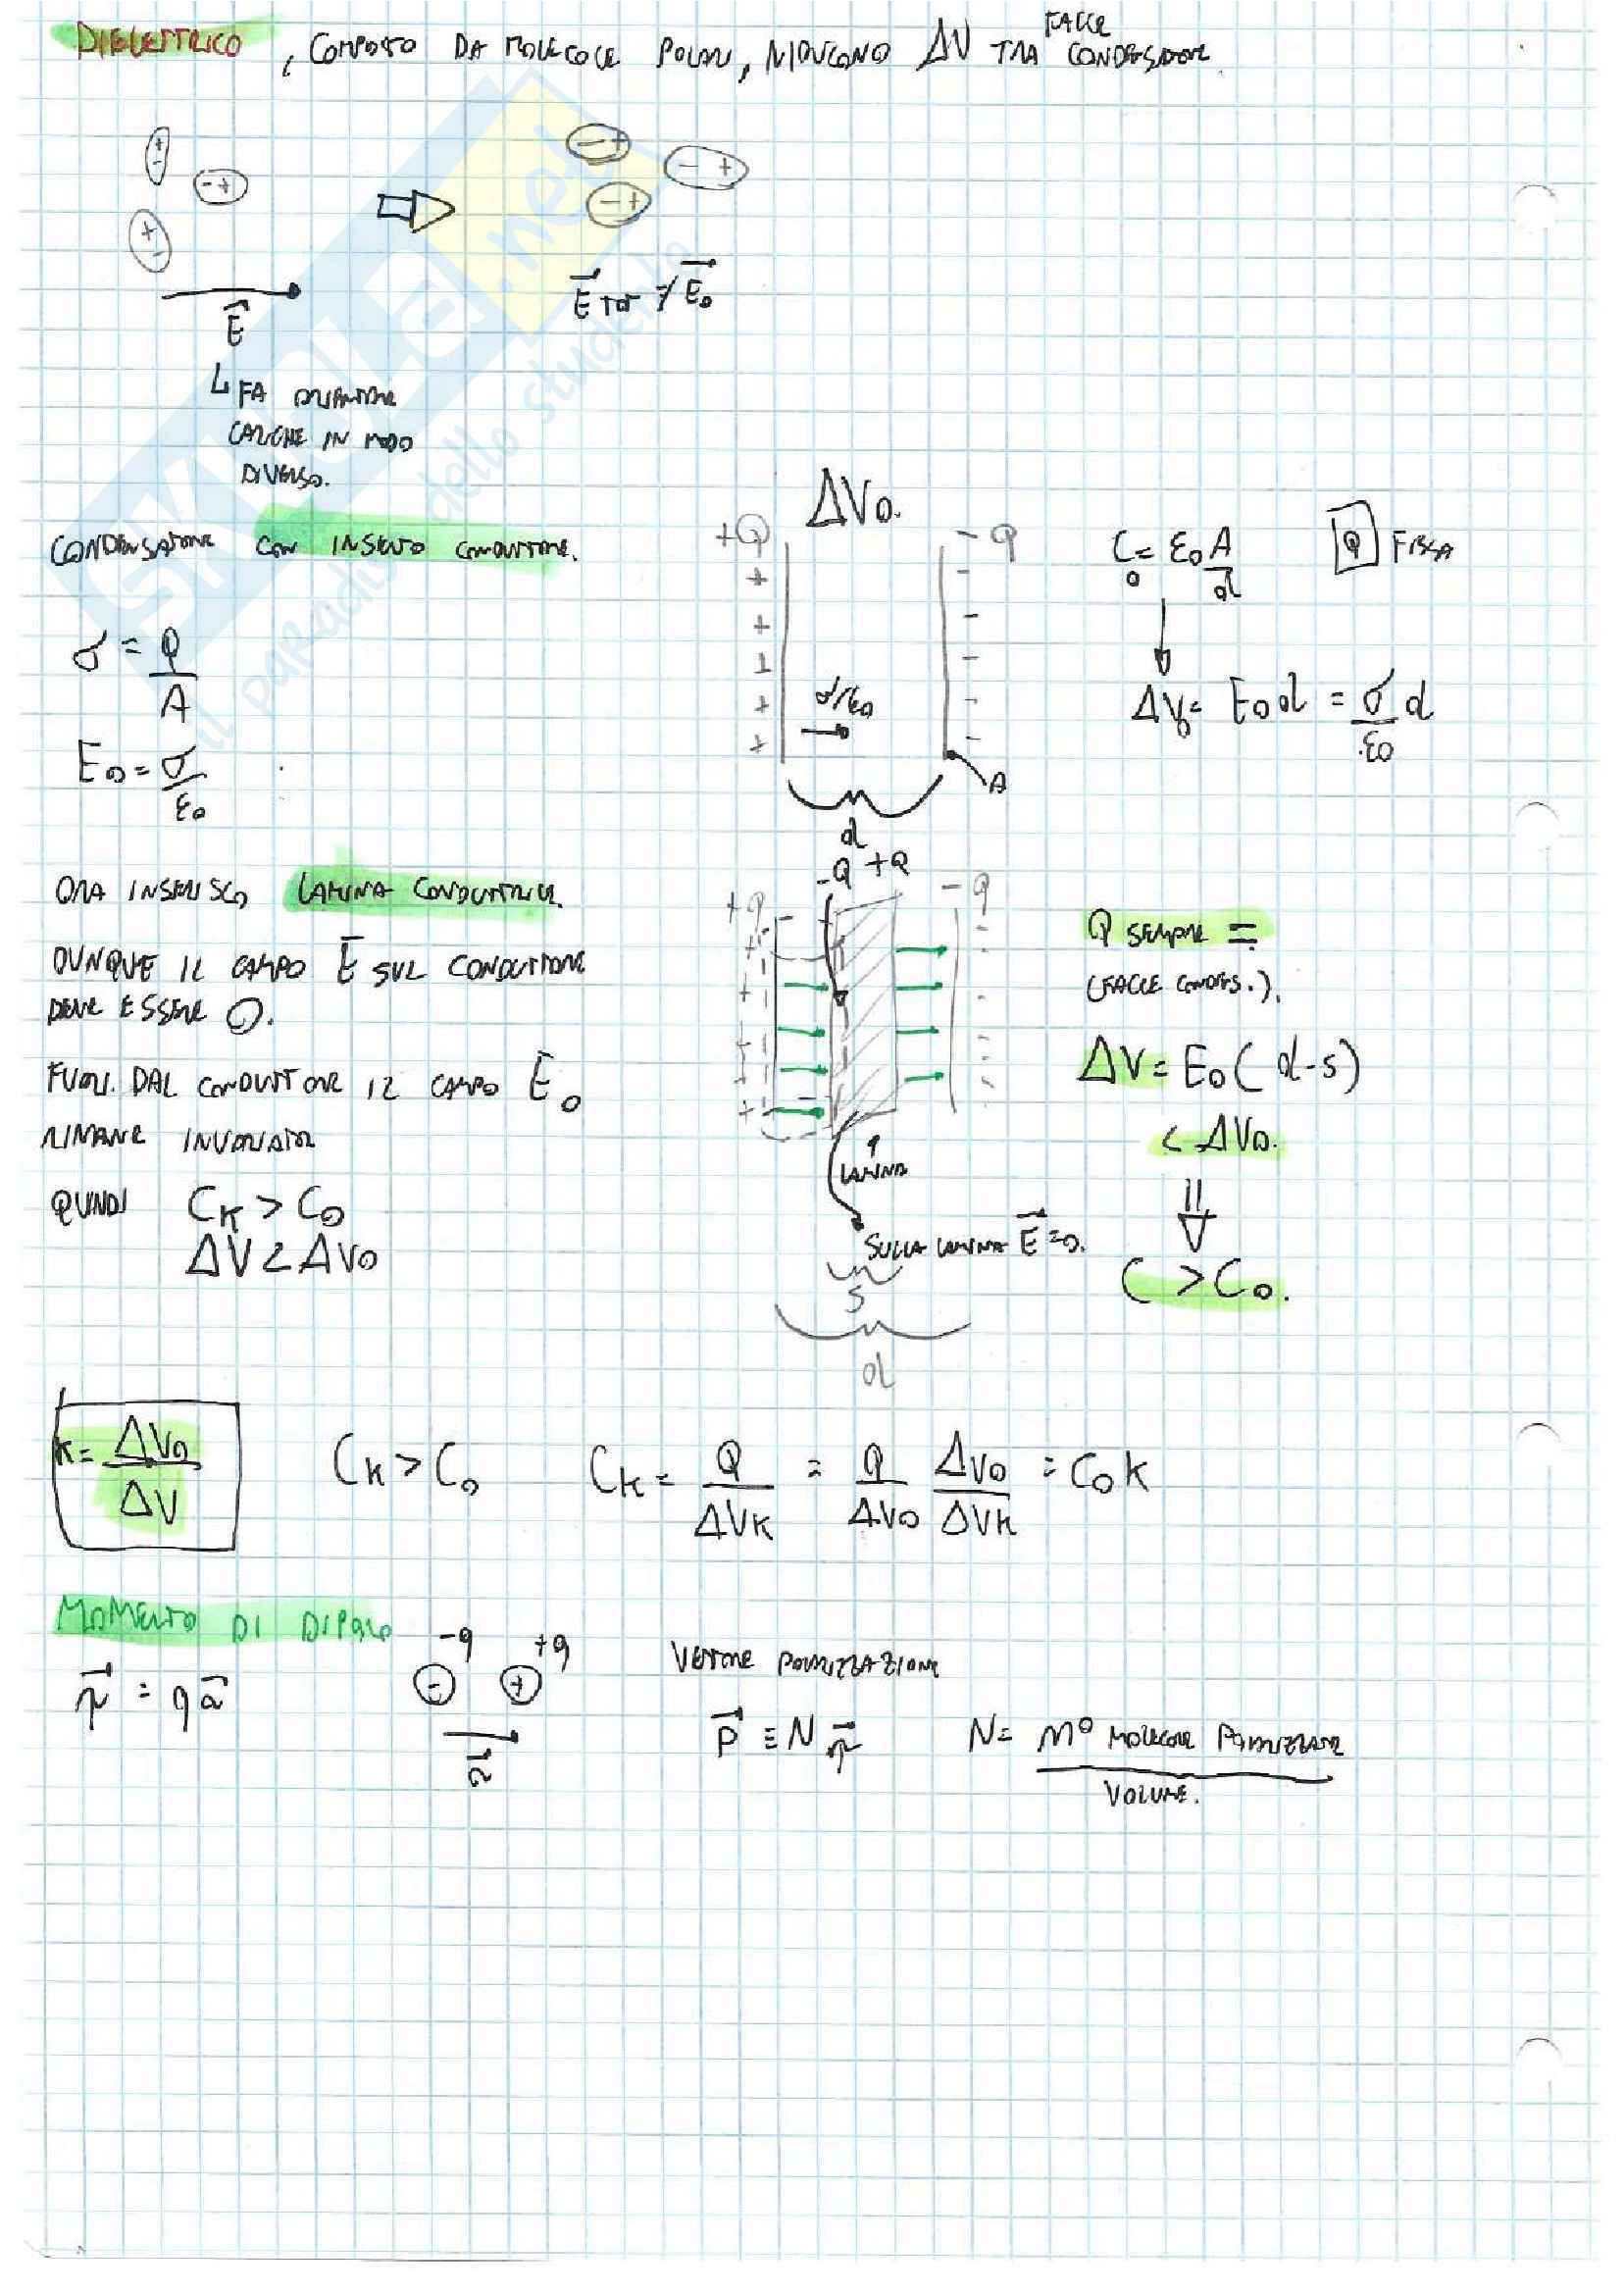 DIELETTRICO, COMPOSTO DA MOLECOLE POLARI, RIDUCONO ΔV TRA FACCE CONDENSATORE.
+ -
- +
+ -
- +
- +
- +
E⃗
E⃗ TOT ≠ E⃗₀
↳ FA ORIENTARE
CARICHE IN MODO
DIVERSO.
CONDENSATORE CON INSERTO CONDUTTORE.
ΔV₀.
+Q
- Q
C₀ = ε₀ A / d
Q FISSA
σ = Q / A
σ/ε₀
ΔV₀ = E₀ d = σ / ε₀ d
E₀ = σ / ε₀
A
d
ORA INSERISCO LAMINA CONDUTTRICE.
DUNQUE IL CAMPO E SUL CONDUTTORE
DEVE ESSERE 0.
FUORI DAL CONDUTTORE IL CAMPO E₀
RIMANE INVARIATO
QUINDI C_K > C₀
ΔV < ΔV₀
-Q +Q
+Q
- Q
LAMINA
SULLA LAMINA E⃗ = 0.
S
d
Q SEMPRE =
(FACCE CONDENS.).
ΔV = E₀ (d-s)
< ΔV₀.
⇓
C > C₀.
K = ΔV₀ / ΔV
C_K > C₀
C_K = Q / ΔV_K = Q / ΔV₀ ΔV₀ / ΔV_K = C₀ K
MOMENTO DI DIPOLO
p⃗ = q a⃗
-q +q
- +
a⃗
VETTORE POLARIZZAZIONE
P⃗ ≡ N p⃗
N = N° MOLECOLE POLARIZZATE / VOLUME.
SKUOLA.net
il paradiso dello studente